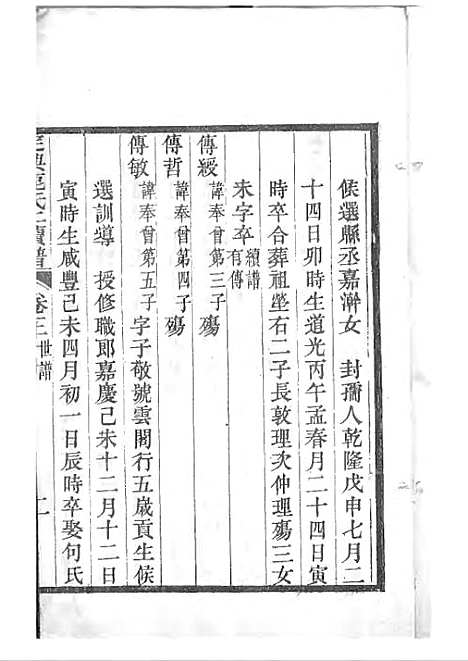 候選縣丞嘉澣女　封孺人乾隆戊申七月二
十四日卯時生道光丙午孟春月二十四日寅
時卒合葬祖塋右二子長敦理次仲理殤三女
未字卒續譜有傳
傳綬諱奉曾第三子殤
傳哲諱奉曾第四子殤
傳敏諱奉曾第五子字子敬號雲閣行五歲貢生候
選訓導　授修職郎嘉慶己未十二月十二日
寅時生咸豐己未四月初一日辰時卒娶句氏
氏二續譜
卷三世譜